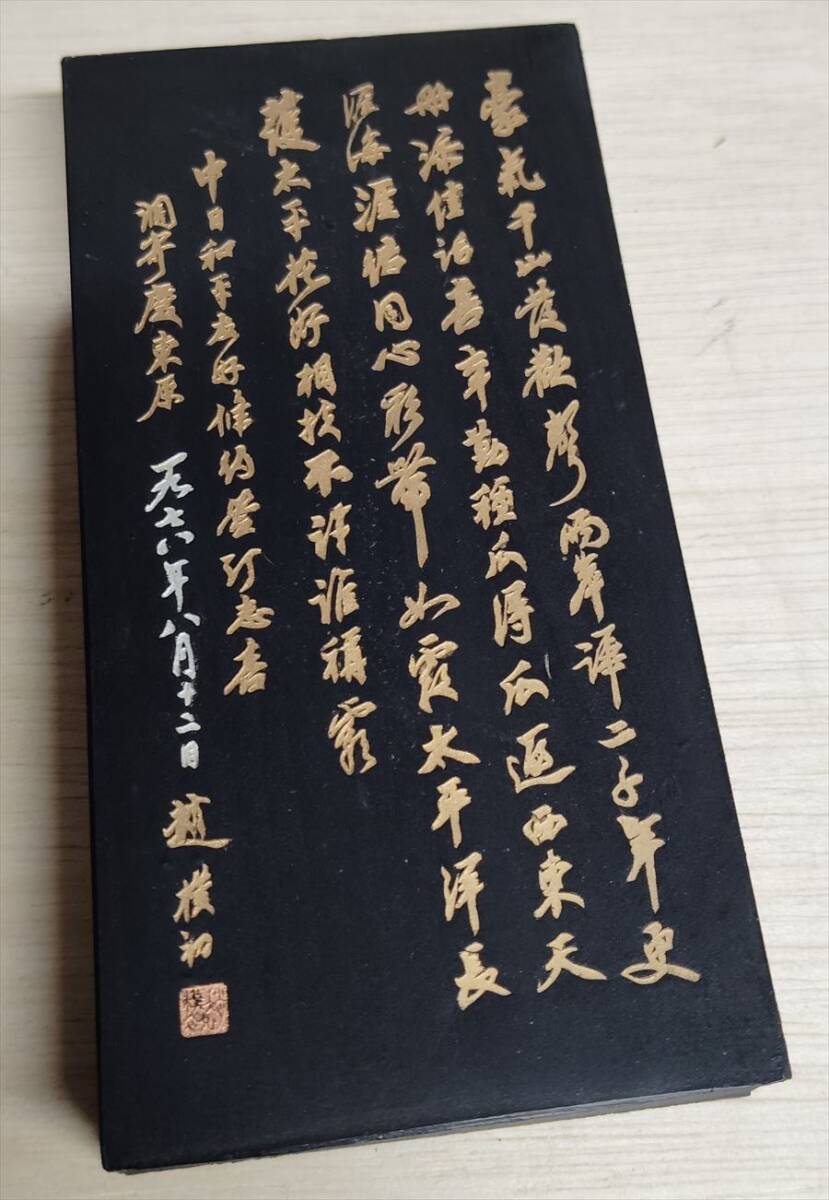 豪氣千山發歡聲兩岸譁二千年更
冊添佳話喜辛勤種瓜得瓜遍西東天
涯海涯結同心彩帶如霞太平洋長
護太平花好相扶不許誰稱霸
中日和平友好條約簽訂志喜
調寄慶東原 一九七八年八月十二日 趙樸初